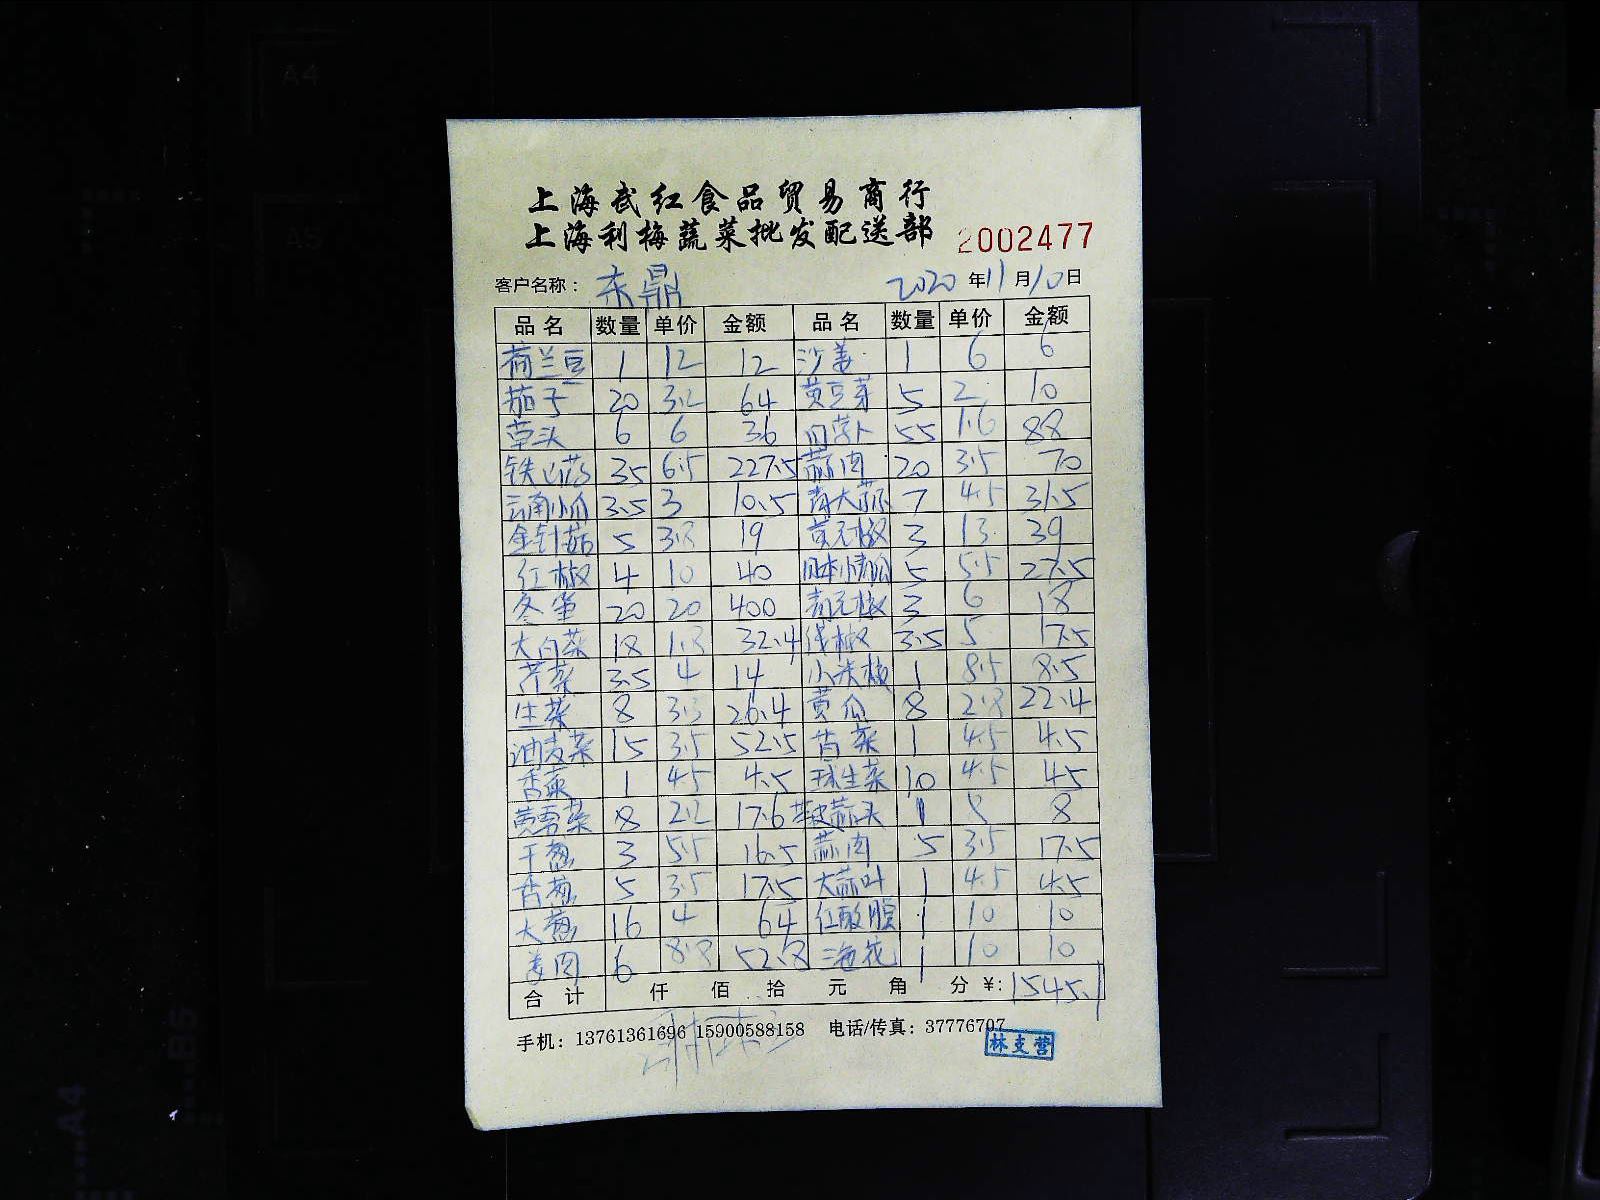 上海武红食品贸易商行
上海利梅蔬菜批发配送部 2002477
客户名称： 东鼎 2020 年 11 月 10 日
品名 数量 单价 金额 品名 数量 单价 金额
荷兰豆 1 12 12 沙姜 1 6 6
茄子 20 3.2 64 黄豆芽 5 2 10
草头 6 6 36 白萝卜 55 1.6 88
铁山药 35 6.5 227.5 蒜肉 20 3.5 70
云南小瓜 3.5 3 10.5 青大蒜 7 4.5 31.5
金针菇 5 3.8 19 黄元椒 3 13 39
红椒 4 10 40 日本小青瓜 5 5.5 27.5
冬笋 20 20 400 青元椒 3 6 18
大白菜 18 1.8 32.4 线椒 3.5 5 17.5
芹菜 3.5 4 14 小米椒 1 8.5 8.5
生菜 8 3.3 26.4 黄瓜 8 2.8 22.4
油麦菜 15 3.5 52.5 芎菜 1 4.5 4.5
香菜 1 4.5 4.5 球生菜 10 4.5 45
黄芽菜 8 2.2 17.6 蒜头 1 8 8
干葱 3 5.5 16.5 蒜肉 5 3.5 17.5
香葱 5 3.5 17.5 大蒜叶 1 4.5 4.5
大葱 16 4 64 红酸膜 1 10 10
姜肉 6 8.8 52.8 三色花 1 10 10
合计 仟 佰 拾 元 角 分 ¥: 1545.1
手机：13761361696 15900588158 电话/传真：37776707
林支营